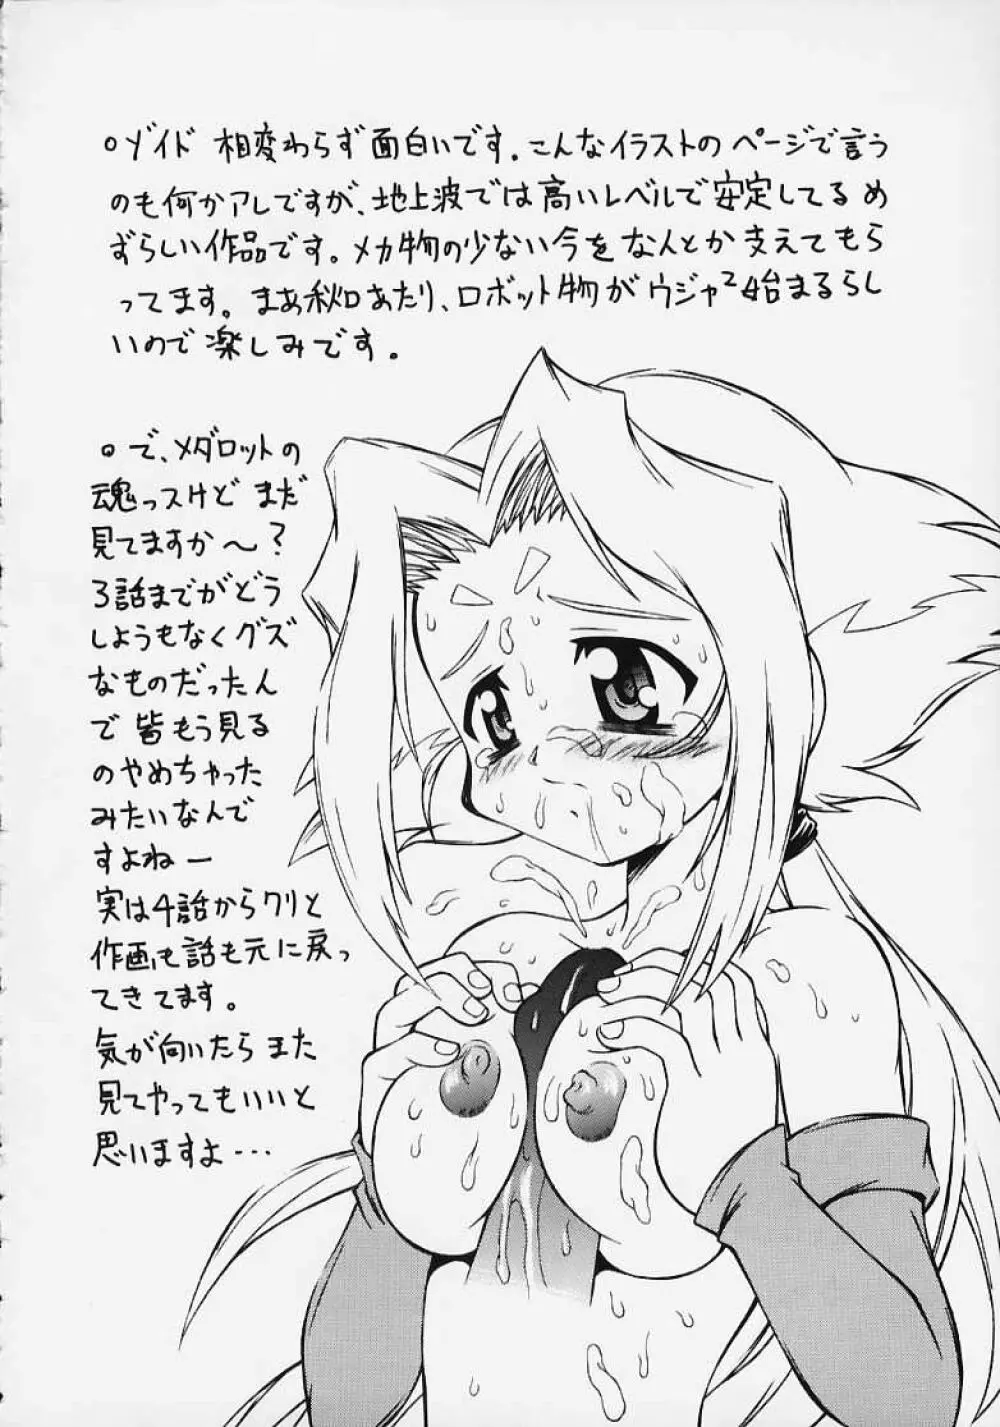 ○ゾイド 相変わらず面白いです。こんなイラストのページで言う
のも何かアレですが、地上波では高いレベルで安定してるめ
ずらしい作品です。メカ物の少ない今をなんとか支えてもら
ってます。まあ秋口あたり、ロボット物がウジャ2始まるらし
いので楽しみです。
○で、メダロットの
魂っスけど まだ
見てますか〜?
3話までがどう
しようもなくグズ
なものだったん
で皆もう見る
のやめちゃった
みたいなんで
すよねー
実は4話からクリと
作画も話も元に戻っ
てきてます。
気が向いたらまた
見てやってもいいと
思いますよ…